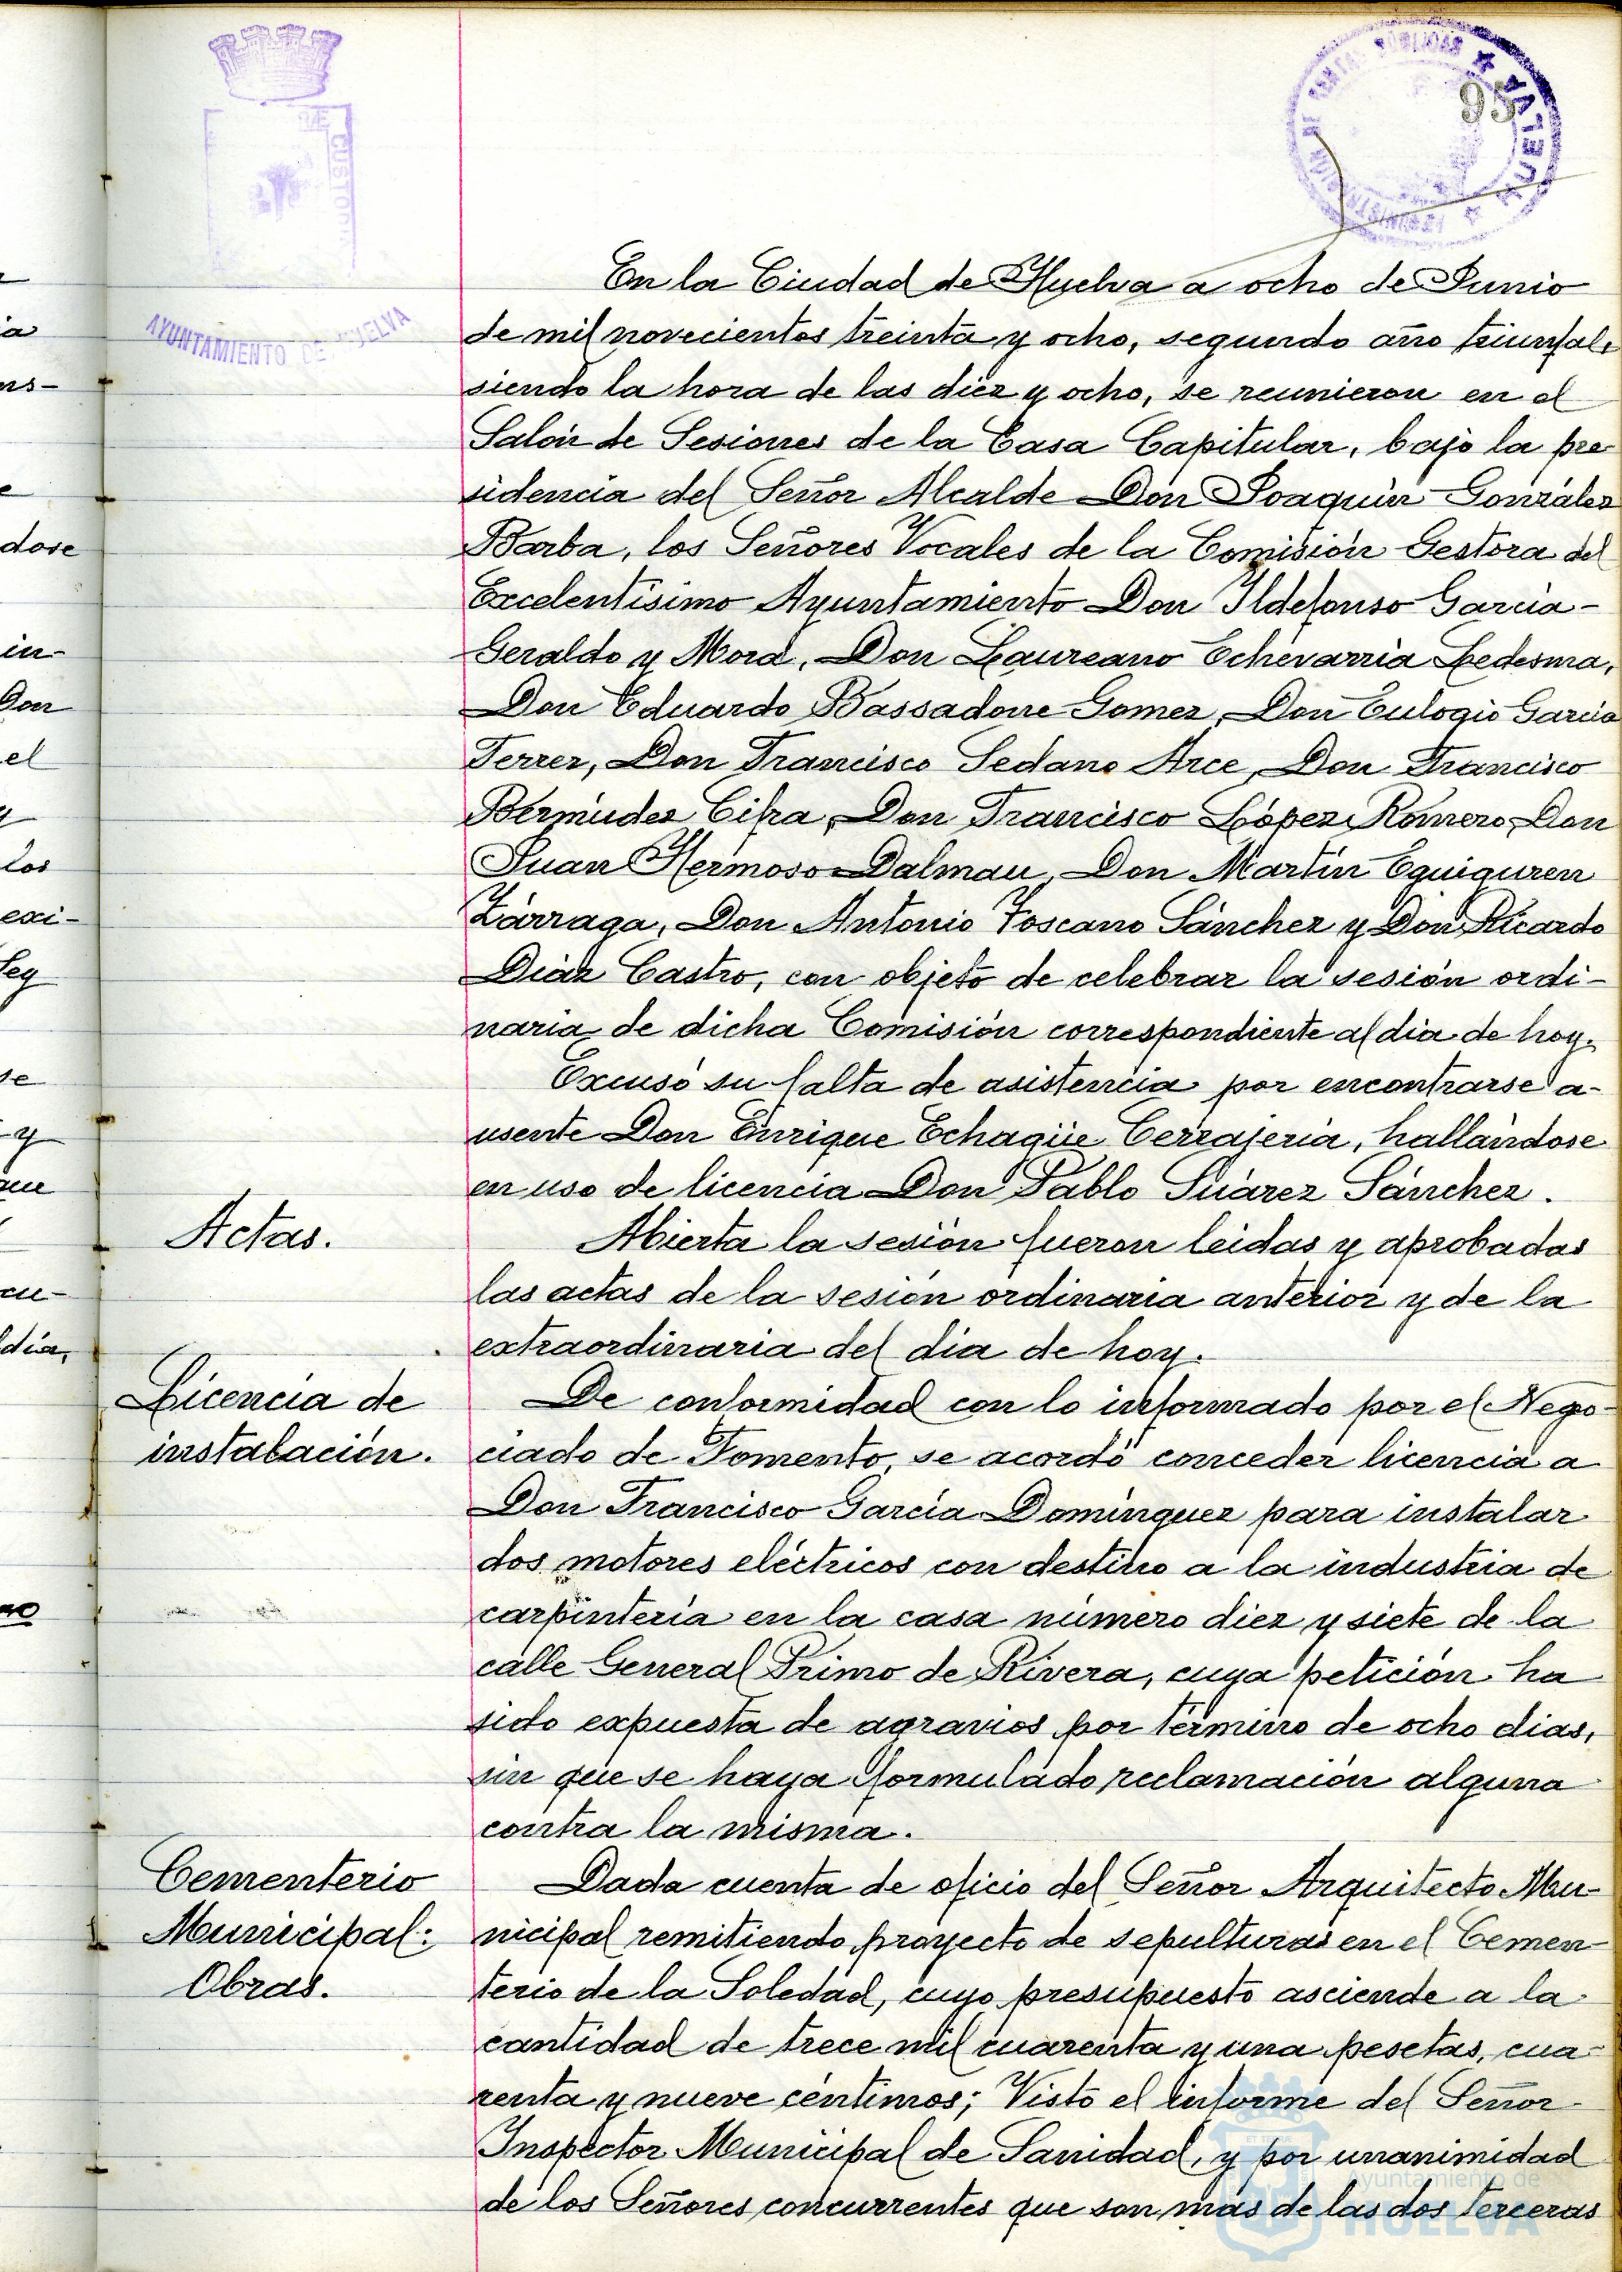 95
AYUNTAMIENTO DE HUELVA
HUELVA
En la Ciudad de Huelva a ocho de Junio
de mil novecientos treinta y ocho, segundo año triunfal,
siendo la hora de las diez y ocho, se reunieron en el
Salón de Sesiones de la Casa Capitular, bajo la pre-
sidencia del Señor Alcalde Don Joaquín González
Barba, los Señores Vocales de la Comisión Gestora del
Excelentísimo Ayuntamiento Don Ildefonso García-
Geraldo y Mora, Don Laureano Echevarría Ledesma,
Don Eduardo Bassadone Gomez, Don Eulogio García
Ferrer, Don Francisco Sedano Arce, Don Francisco
Bermúdez Cifra, Don Francisco López Romero, Don
Juan Hermoso Dalmau, Don Martín Eguiguren
Zárraga, Don Antonio Toscano Sánchez y Don Ricardo
Díaz Castro, con objeto de celebrar la sesión ordi-
naria de dicha Comisión correspondiente al dia de hoy.
Excusó su falta de asistencia por encontrarse a-
usente Don Enrique Echagüe Cerrajería, hallándose
en uso de licencia Don Pablo Suárez Sánchez.
Actas.
Abierta la sesión fueron leidas y aprobadas
las actas de la sesión ordinaria anterior y de la
extraordinaria del dia de hoy.
Licencia de
instalación.
De conformidad con lo informado por el Nego-
ciado de Fomento, se acordó conceder licencia a
Don Francisco García Domínguez para instalar
dos motores eléctricos con destino a la industria de
carpintería en la casa número diez y siete de la
calle General Primo de Rivera, cuya petición ha
sido expuesta de agravios por término de ocho dias,
sin que se haya formulado reclamación alguna
contra la misma.
Cementerio
Municipal:
Obras.
Dada cuenta de oficio del Señor Arquitecto Mu-
nicipal remitiendo proyecto de sepulturas en el Cemen-
terio de la Soledad, cuyo presupuesto asciende a la
cantidad de trece mil cuarenta y una pesetas, cua-
renta y nueve céntimos; Visto el informe del Señor
Inspector Municipal de Sanidad, y por unanimidad
de los Señores concurrentes que son más de las dos terceras
Ayuntamiento de
HUELVA